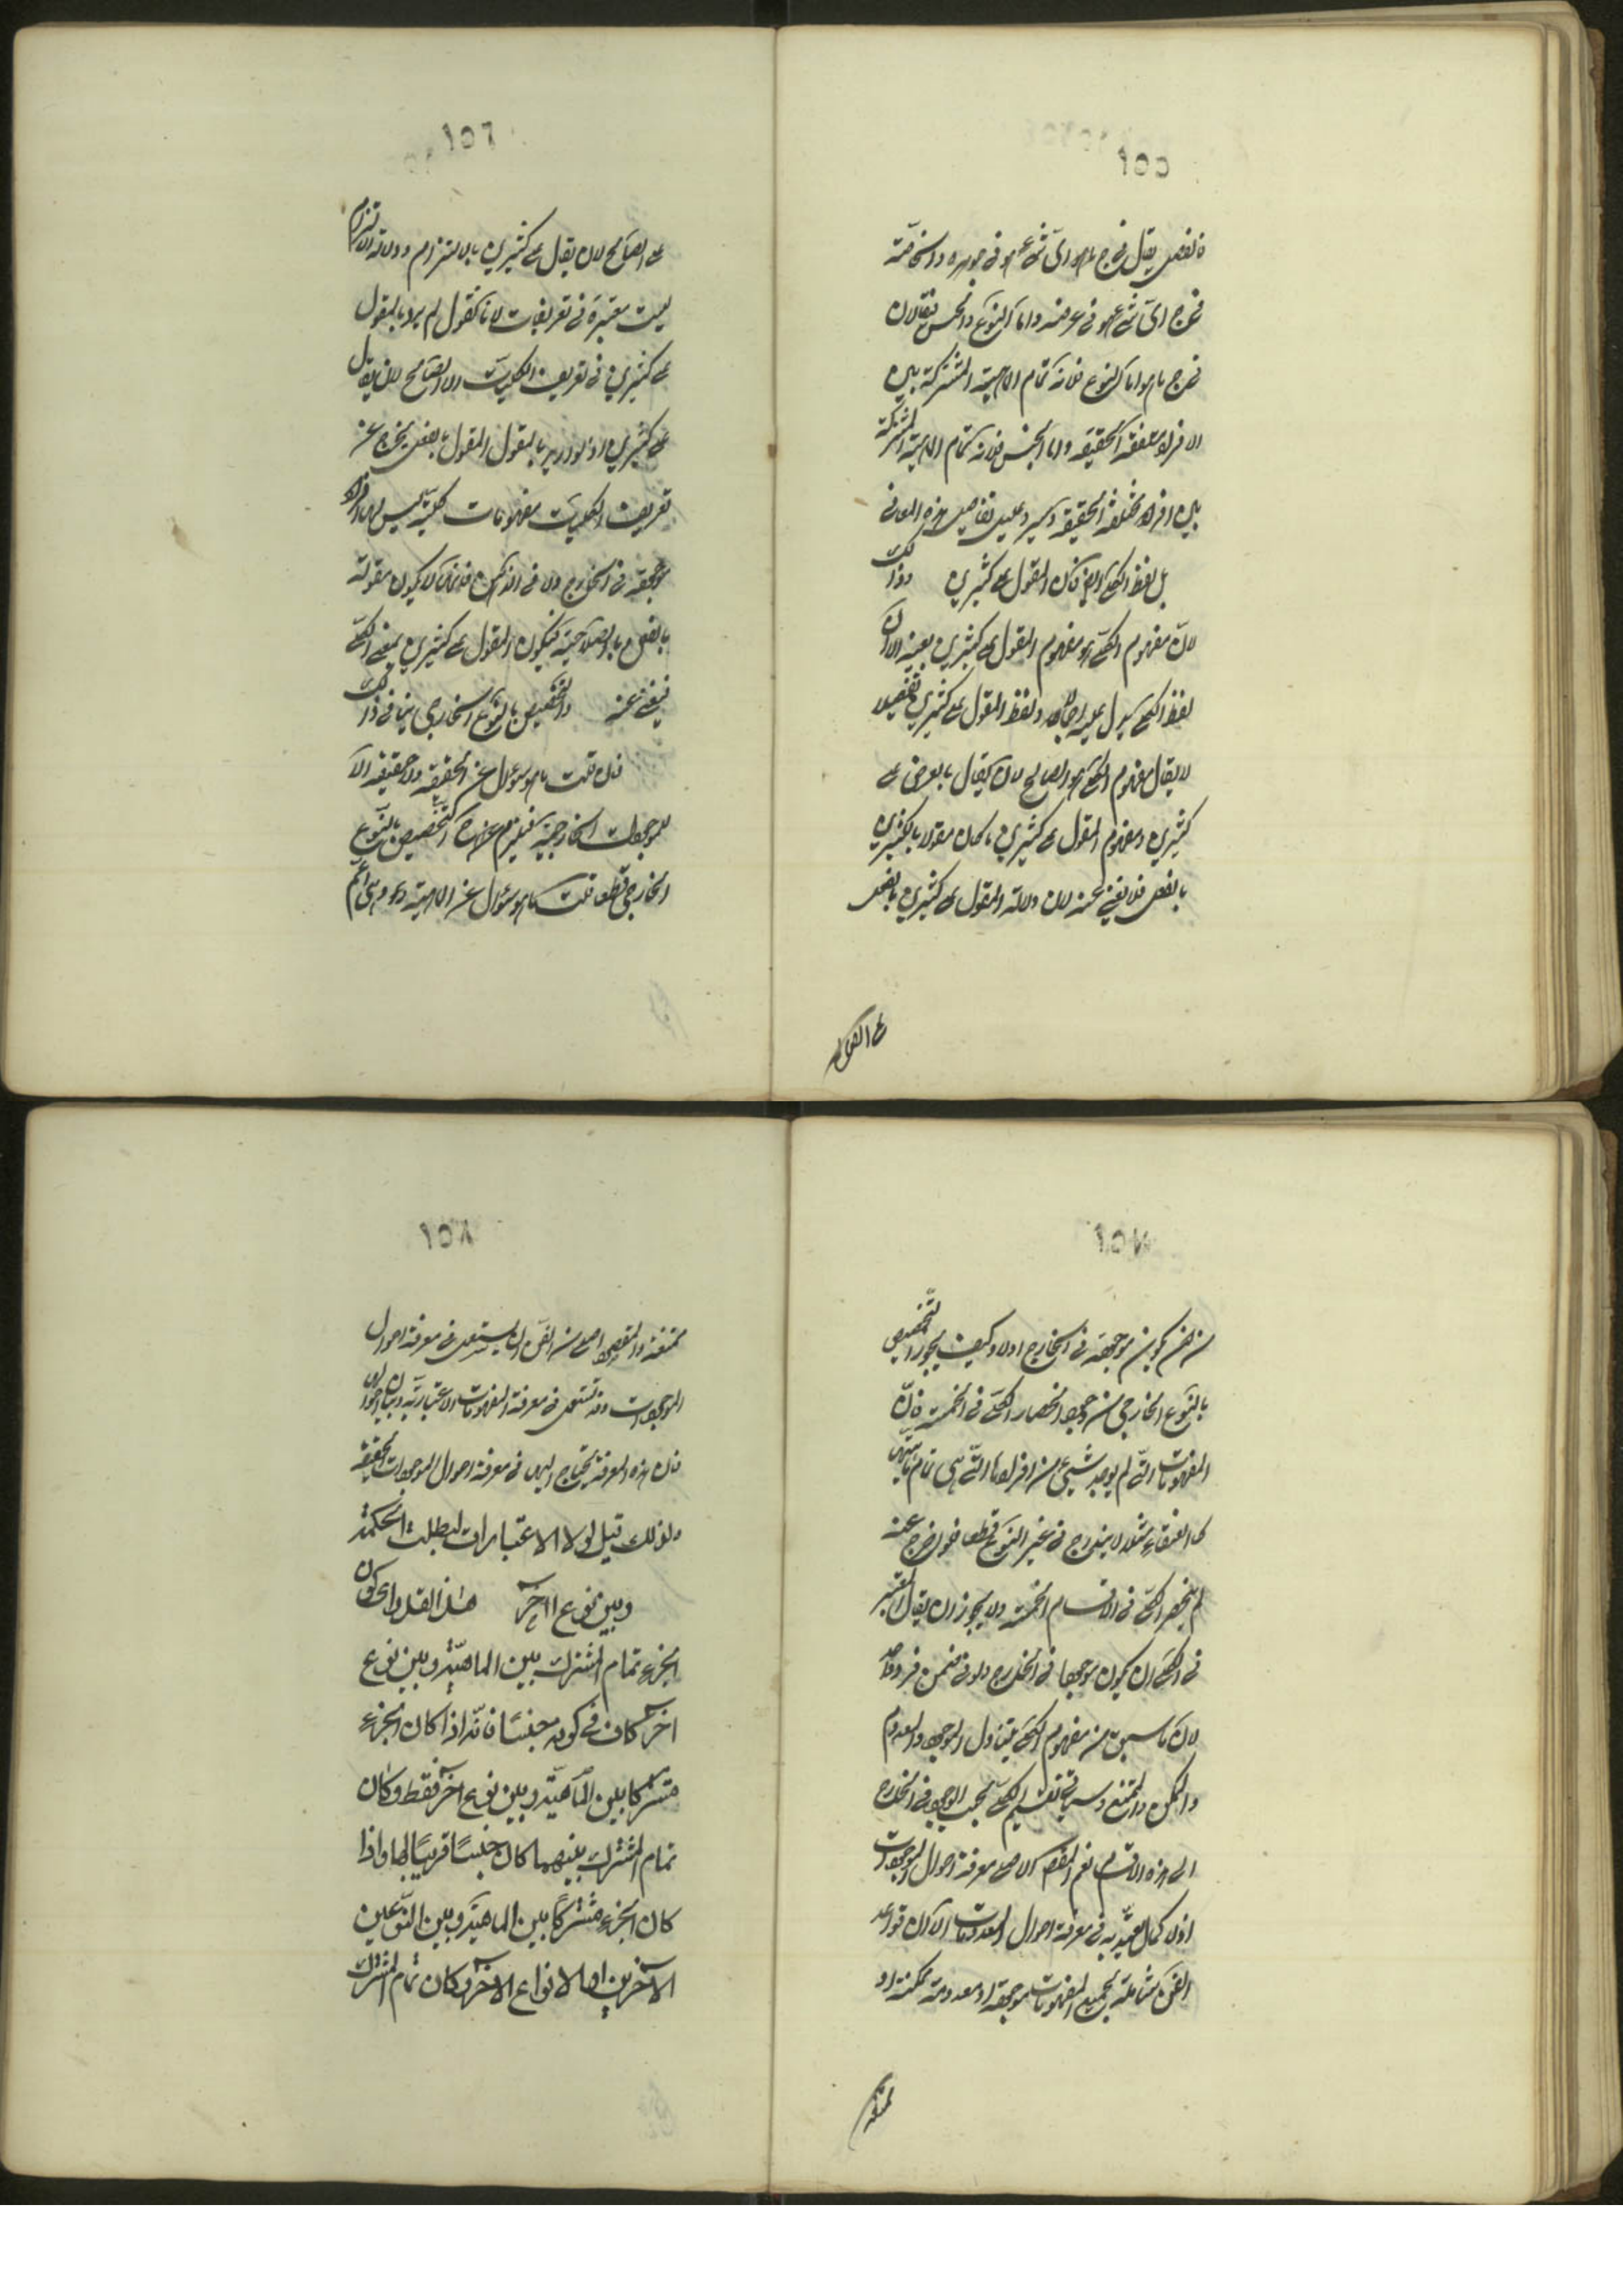 ١٥٥
فالفصل يقال في ج اي شئ هو في جوهره والخاصة
في ج اي شئ هو في عرضه واما النوع والجنس يقالان
في ج ما هو اما النوع فلانه تمام الماهية المشتركة بين
الافراد متفقة الحقيقة واما الجنس فلانه تمام الماهية المشتركة
بين افراد مختلفة الحقيقة وسيرد عليك تفاصيل هذه المعاني
بل لفظ الكلي فان المقول على كثيرين وذلك
لان مفهوم الكلي هو مفهوم المقول على كثيرين بعينه الا ان
لفظ الكلي يدل عليه اجمالا ولفظ المقول على كثيرين تفصيلا
لا يقال مفهوم الكلي هو الصالح لان يقال بالعرض على
كثيرين ومفهوم المقول على كثيرين ما كان مقولا بالكثيرين
بالفعل فلا يغني عنه لان دلالة المقول على كثيرين بالفعل
على الصالح
١٥٦
على الصالح لان يقال على كثيرين بالالتزام ودلالة الالتزام
ليست معتبرة في تعريفات لانا نقول لم يرد بالمقول
على كثيرين في تعريف الكليات الا الصالح لان يقال
على كثيرين اذ لو اريد بالمقول المقول بالفعل يخرج عن
تعريف الكليات مفهومات كلية ليس لها افراد
موجودة في الخارج ولا في الذهن فانها لا يكون مقولة
بالفعل بل بالصلاحية فيكون المقول على كثيرين بمعنى الكلي
فيغني عنه والتخصيص بالنوع الخارجي ينافي ذلك
فان قلت ما هو سؤال عن الحقيقة ولا حقيقة الا
للموجودات الخارجية فيلزم من هذا التخصيص بالنوع
الخارجي قطعا قلت ما هو سؤال عن الماهية وهي اعم
١٥٧
من ان يكون موجودة في الخارج اولا وكيف يجوز التخصيص
بالنوع الخارجي مع وجوب انحصار الكلي في الخمسة فان
المفهومات التي لم يوجد شيئ من افرادها التي هي تمام ماهيتها
كالعنقاء مثلا لا يندرج في غير النوع قطعا فلو خرج عنه
لم ينحصر الكلي في الاقسام الخمسة ولا يجوز ان يقال المعتبر
في الكلي ان يكون موجودا في الخارج ولو في ضمن فرد واحد
لان ما سبق من مفهوم الكلي يتناول الموجود والمعدوم
والممكن والممتنع وسيأتي تقسيم الكلي بحسب الوجود في الخارج
الى هذه الاقسام نعم المقصد الاصلي معرفة احوال الموجودات
اذ لا كمال يعتد به في معرفة احوال المعدومات الا ان قواعد
الفن شاملة لجميع المفهومات موجودة او معدومة ممكنة او
ممتنعة
١٥٨
ممتنعة والمقصود الاصلي من الفن ان يستعمل في معرفة احوال
الموجودات وقد تستعمل في معرفة المفهومات الاعتبارية وبيان احوالها
فان هذه المعرفة يحتاج اليها في معرفة احوال الموجودات الحقيقية
ولذلك قيل لولا الاعتبارات لبطلت الحكمة
وبين نوع اخر هذا القدر اى كون
الجزء تمام المشترك بين الماهية وبين نوع
اخر كاف في كونه جنسًا فانّه اذا كان الجزء
مشتركا بين الماهيّة وبين نوع اخر فقط وكان
تمام المشترك بينهما كان جنسًا قريبًا لها واذا
كان الجزء مشتركًا بين الماهية وبين النّوعين
الاخرين او الانواع الاخر وكان تمام المشترك